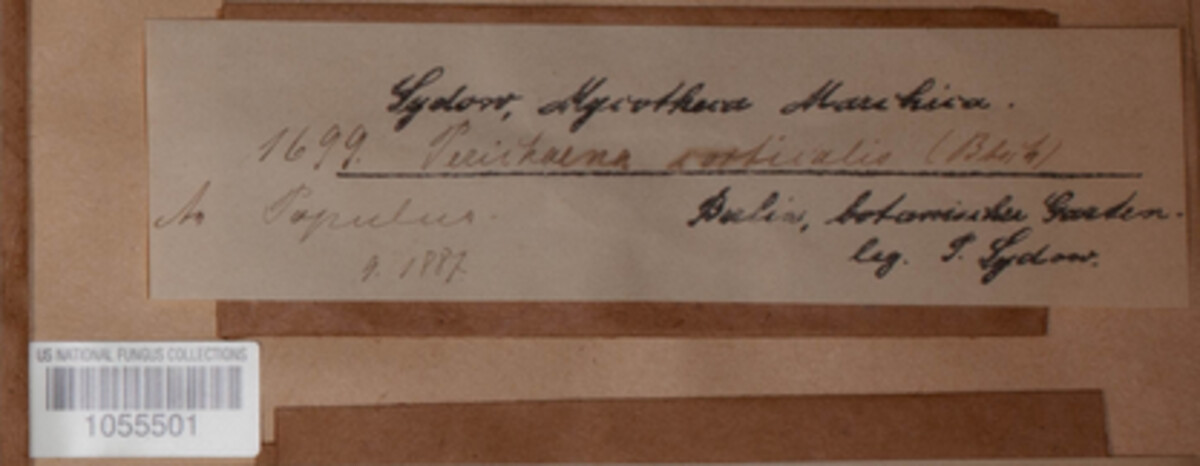 Sydow, Mycotheca Marchica.
1699. Perichaena corticalis (Batsch)
An Populus.
9. 1887.
Berlin, botanischer Garten.
leg. P. Sydow.
US NATIONAL FUNGUS COLLECTIONS
1055501